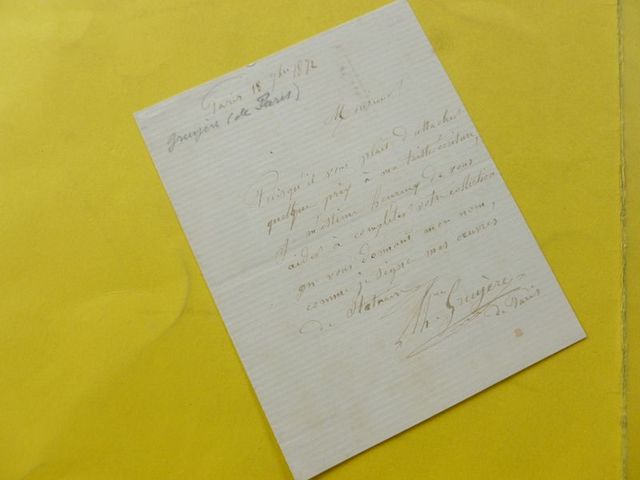 Paris 18 9bre 1872
Gruyère (de Paris)
Monsieur
Puisqu'il vous plait d'attacher
quelque prix à ma triste écriture,
je m'estime heureux de vous
aider à completer votre collection
en vous donnant mon nom,
comme je signe mes œuvres
de Statuaire
Th. Gruyère
de Paris